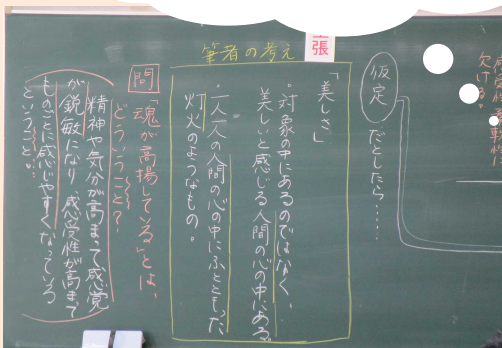 欠ける。
仮定
だとしたら……
主張
筆者の考え
「美しさ」
・対象の中にあるのではなく、
美しいと感じる人間の心の中にある。
・一人一人の人間の心の中にふとともった
灯火のようなもの。
問
「魂が高揚している」とは、
どういうこと?
精神や気分が高まって感覚
が鋭敏になり、感受性が高まって
ものごとに感じやすくなっている
ということ。